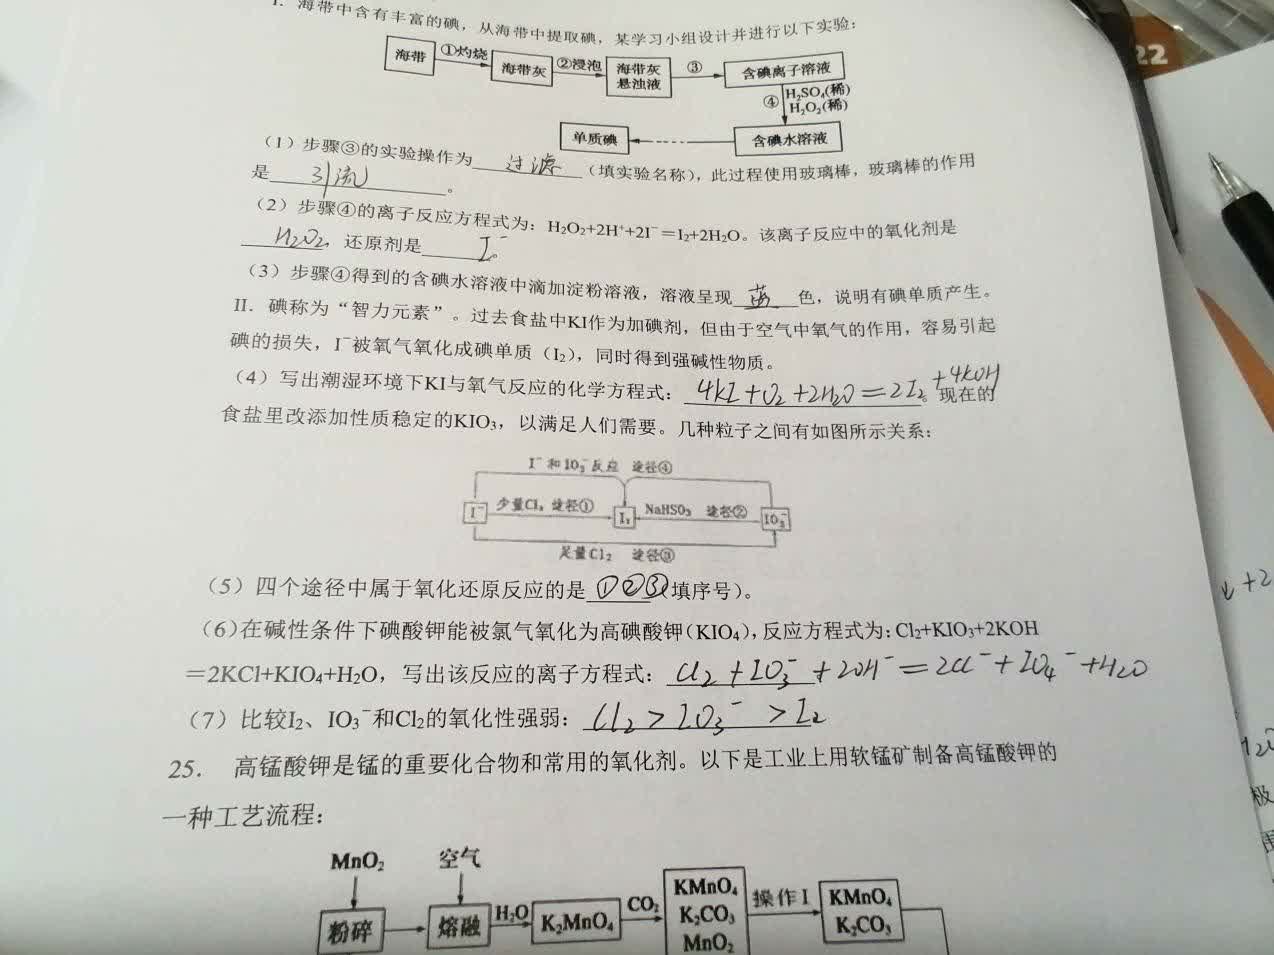 I. 海带中含有丰富的碘，从海带中提取碘，某学习小组设计并进行以下实验：
海带 ①灼烧 海带灰 ②浸泡 海带灰悬浊液 ③ 含碘离子溶液
④ H₂SO₄(稀) H₂O₂(稀)
单质碘 含碘水溶液
22
（1）步骤③的实验操作为 过滤 （填实验名称），此过程使用玻璃棒，玻璃棒的作用
是 引流 。
（2）步骤④的离子反应方程式为：H₂O₂+2H⁺+2I⁻=I₂+2H₂O。该离子反应中的氧化剂是
H₂O₂，还原剂是 I⁻。
（3）步骤④得到的含碘水溶液中滴加淀粉溶液，溶液呈现 蓝 色，说明有碘单质产生。
II. 碘称为“智力元素”。过去食盐中KI作为加碘剂，但由于空气中氧气的作用，容易引起
碘的损失，I⁻被氧气氧化成碘单质（I₂），同时得到强碱性物质。
（4）写出潮湿环境下KI与氧气反应的化学方程式： 4KI+O₂+2H₂O=2I₂+4KOH 。现在的
食盐里改添加性质稳定的KIO₃，以满足人们需要。几种粒子之间有如图所示关系：
I⁻和IO₃⁻反应 途径④
I⁻ 少量Cl₂ 途径① I₂ NaHSO₃ 途径② IO₃⁻
足量Cl₂ 途径③
（5）四个途径中属于氧化还原反应的是 ①②③ (填序号)。
（6）在碱性条件下碘酸钾能被氯气氧化为高碘酸钾(KIO₄)，反应方程式为：Cl₂+KIO₃+2KOH
=2KCl+KIO₄+H₂O，写出该反应的离子方程式： Cl₂+IO₃⁻+2OH⁻=2Cl⁻+IO₄⁻+H₂O
（7）比较I₂、IO₃⁻和Cl₂的氧化性强弱： Cl₂>IO₃⁻>I₂
25． 高锰酸钾是锰的重要化合物和常用的氧化剂。以下是工业上用软锰矿制备高锰酸钾的
一种工艺流程：
MnO₂ 空气
粉碎 熔融 H₂O K₂MnO₄ CO₂ KMnO₄ K₂CO₃ MnO₂ 操作I KMnO₄ K₂CO₃